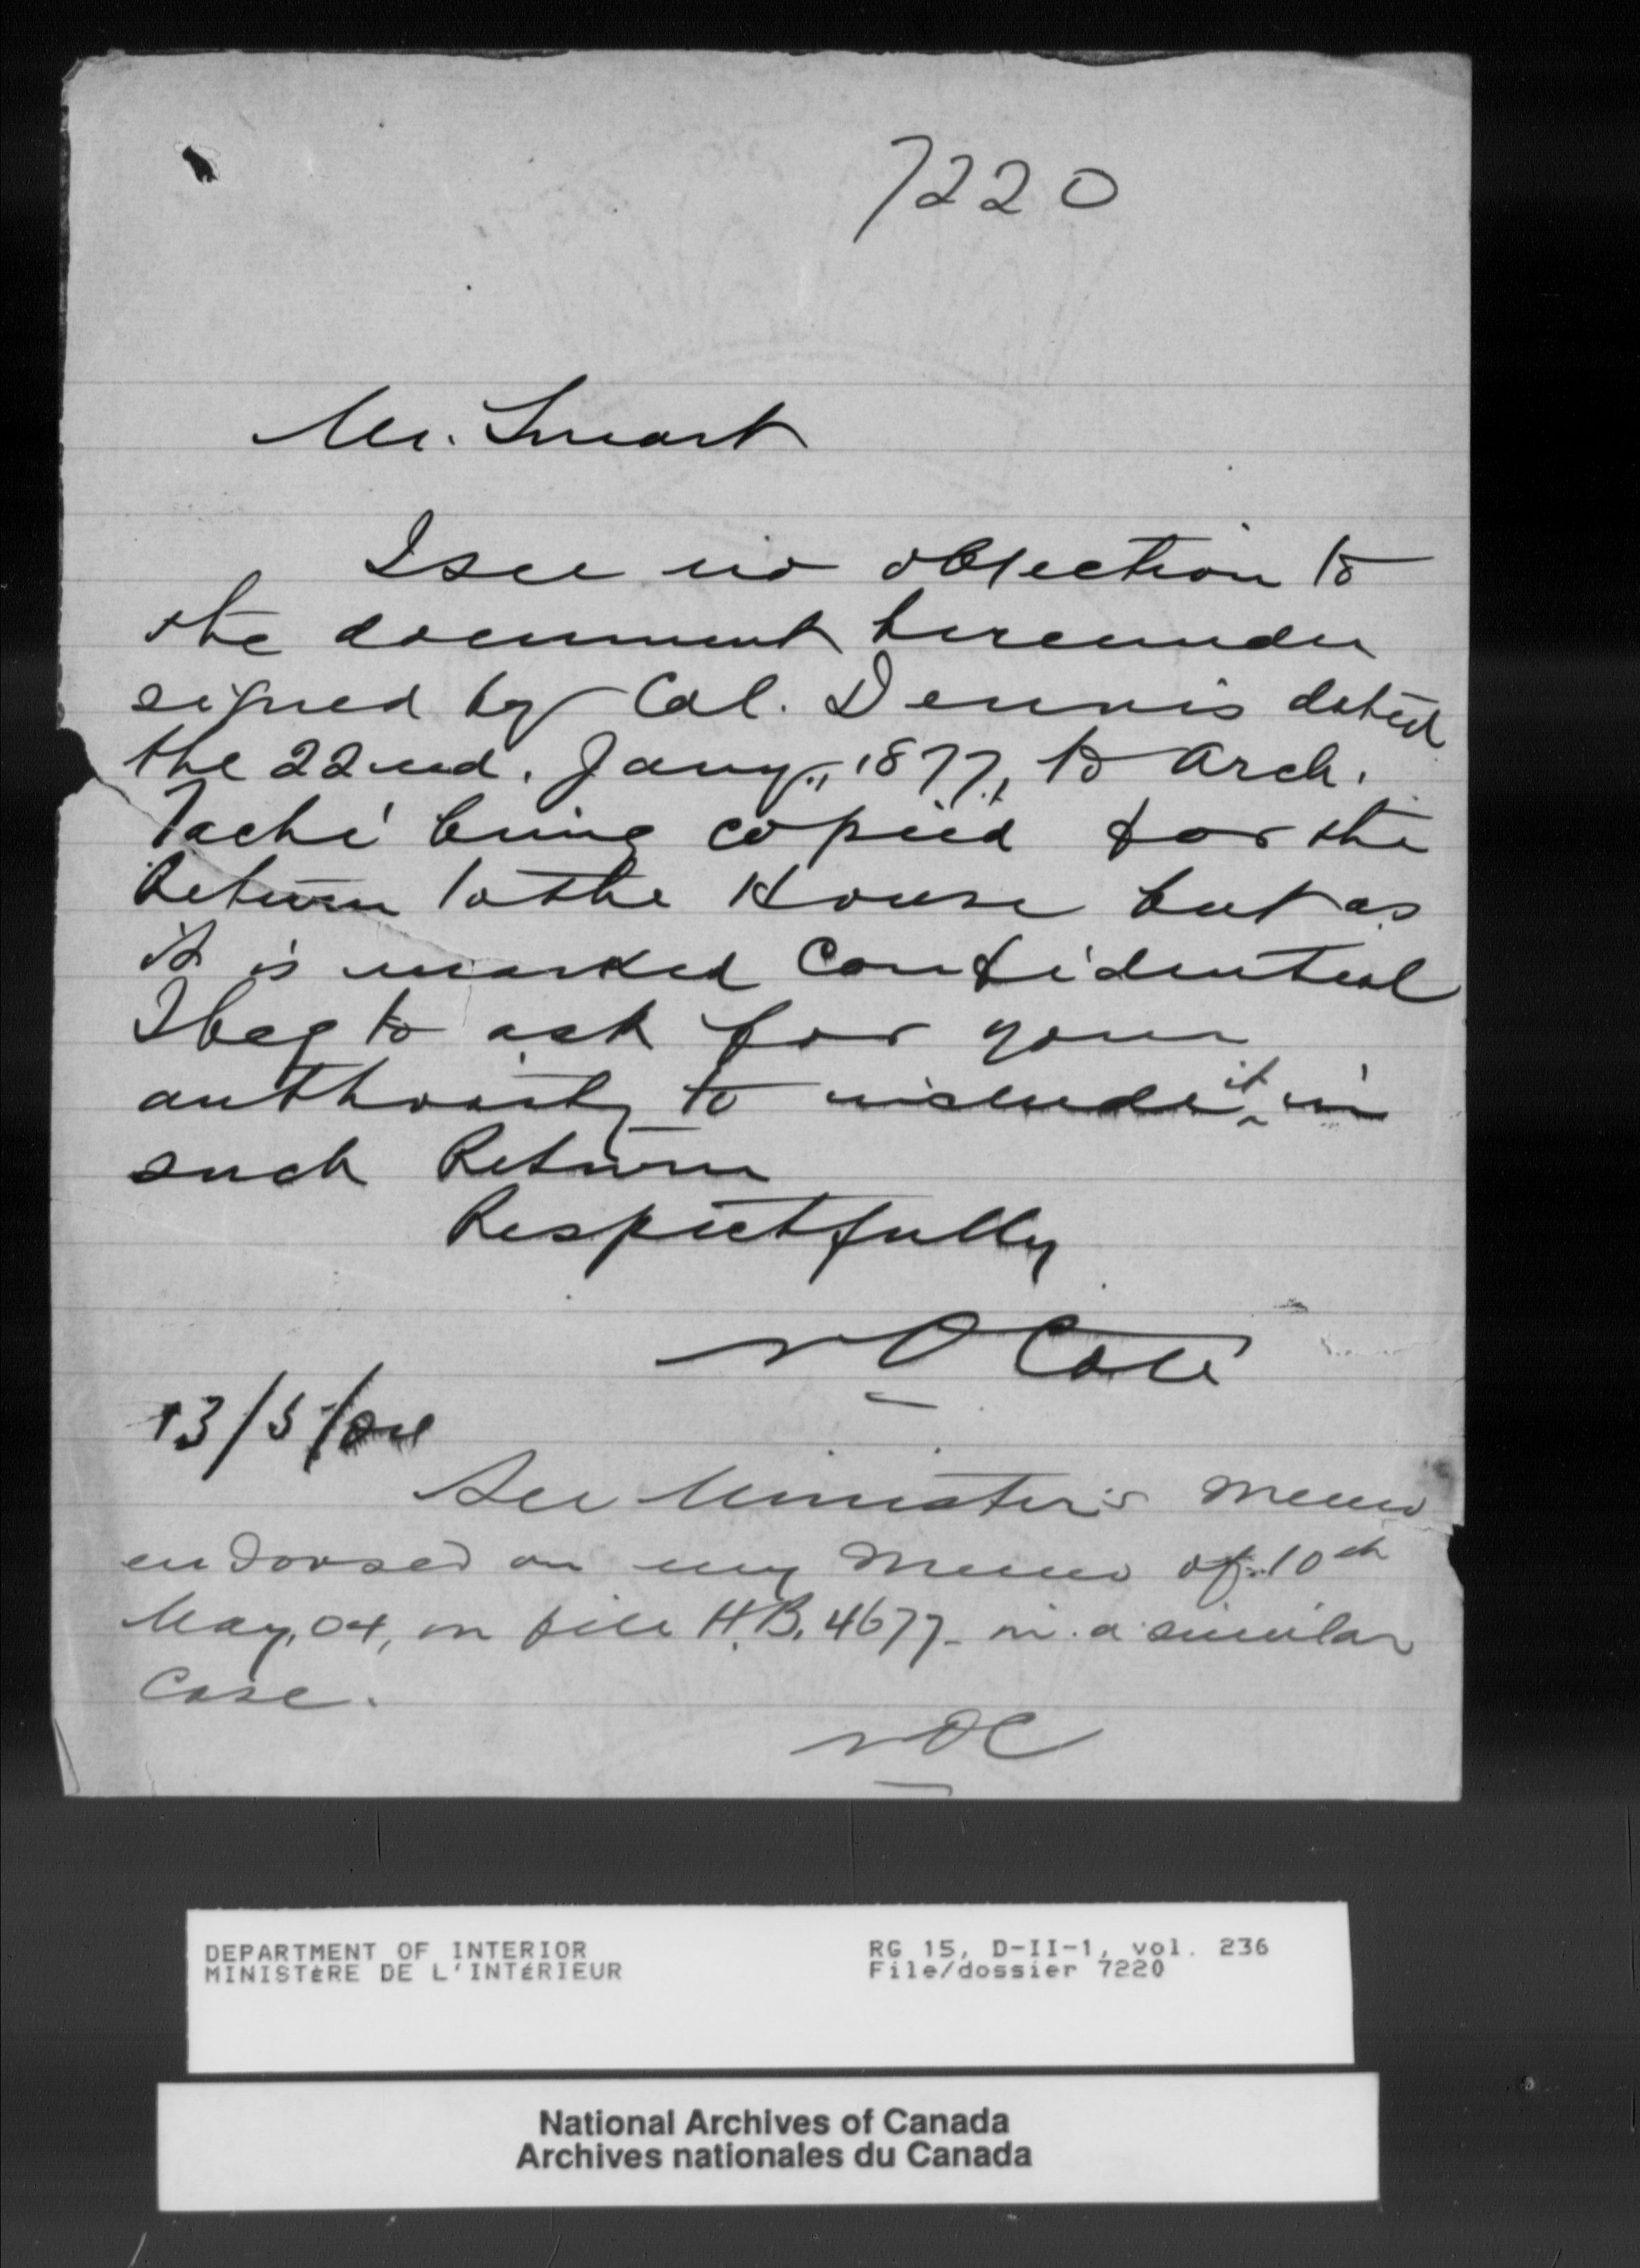 7220
Mr. Smart
I see no objection to
the document hereunder
signed by Col. Dennis dated
the 22nd. Jany., 1877, to Arch.
Taché being copied for the
Return to the House but as
it is marked Confidential
I beg to ask for your
authority to include it in
such Return
Respectfully
N O Coté
13/5/04
See Minister's memo
endorsed on my memo of 10th
May, 04, on file H.B. 4677 - in a similar
case.
NOC
DEPARTMENT OF INTERIOR
MINISTÈRE DE L'INTÉRIEUR
RG 15, D-II-1, vol. 236
File/dossier 7220
National Archives of Canada
Archives nationales du Canada